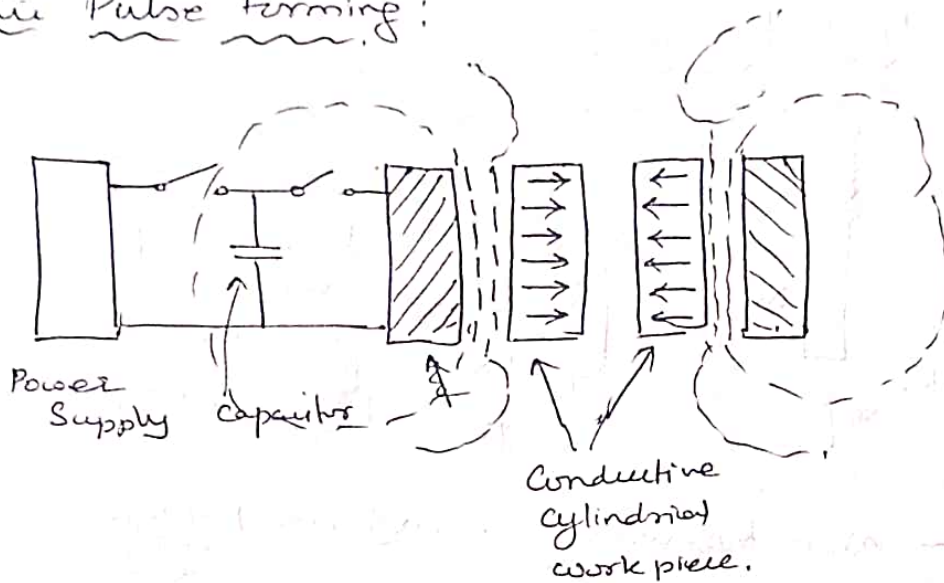 Pulse Forming:
Power
Supply
Capacitor
Conductive
Cylindrical
work piece.